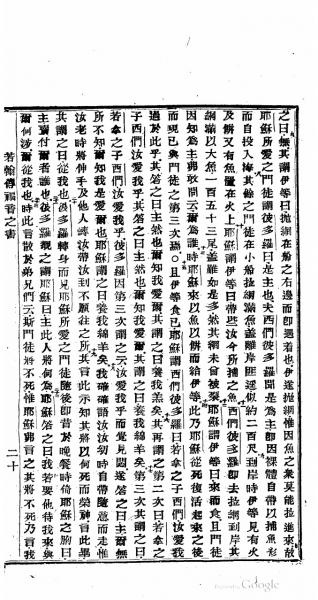 之曰無其謂伊等曰拋網在船之右邊而卽遇着也伊遂拋網惟因魚之衆莫能拉進來故
耶穌所愛之門徒謂彼多羅曰是主也夫西們彼多羅聞是為主卽因裸體自帶以捕魚衫
而自投入海其餘之門徒在小船拉網滿魚蓋離岸匪遙似約二百尺到岸時伊等見有火
及餅又有魚置在火上耶穌謂伊等曰帶些汝今所捕之魚西們彼多羅卽去拉網到岸其
網滿以大魚一百五十三尾蓋雖如是多然其網未曾被裂耶穌謂伊等曰來而食且門徒
因知為主弗敢問云爾為誰時耶穌來以魚以餅而給伊等此乃耶穌從死復活起來之後
而現已與門徒之第三次焉○且伊等食已耶穌謂西們彼多羅曰若拿之子西們汝愛我
過於此乎其答之曰主然也爾知我愛爾其謂之曰養我羔矣其再謂之第二次曰若拿之
子西們汝愛我乎其答之曰主然也爾知我愛爾其謂之曰養我綿羊矣第三次其謂之曰
若拿之子西們汝愛我乎彼多羅因第三次謂之云汝愛我乎而覺見悶遂答之曰主爾無
所不知爾知我是愛爾也耶穌謂之曰養我綿羊矣我確確語汝汝幼時自帶隨意而走惟
汝老時將伸手及他人將汝帶汝到不願往之所其言此示知其將以何死而榮神言此畢
其謂之曰從我也彼多羅轉身而見耶穌所愛之門徒隨後卽昔於晚餐時倚耶穌之胸曰
主賣付爾者誰也彼多羅覩之謂耶穌曰主此人將何為耶穌答之曰我若要他待我來與
爾何涉爾從我也時此言散於弟兄們云斯門徒將不死惟耶穌弗言之其將不死乃言我
若翰傳福音之書
二十
Google